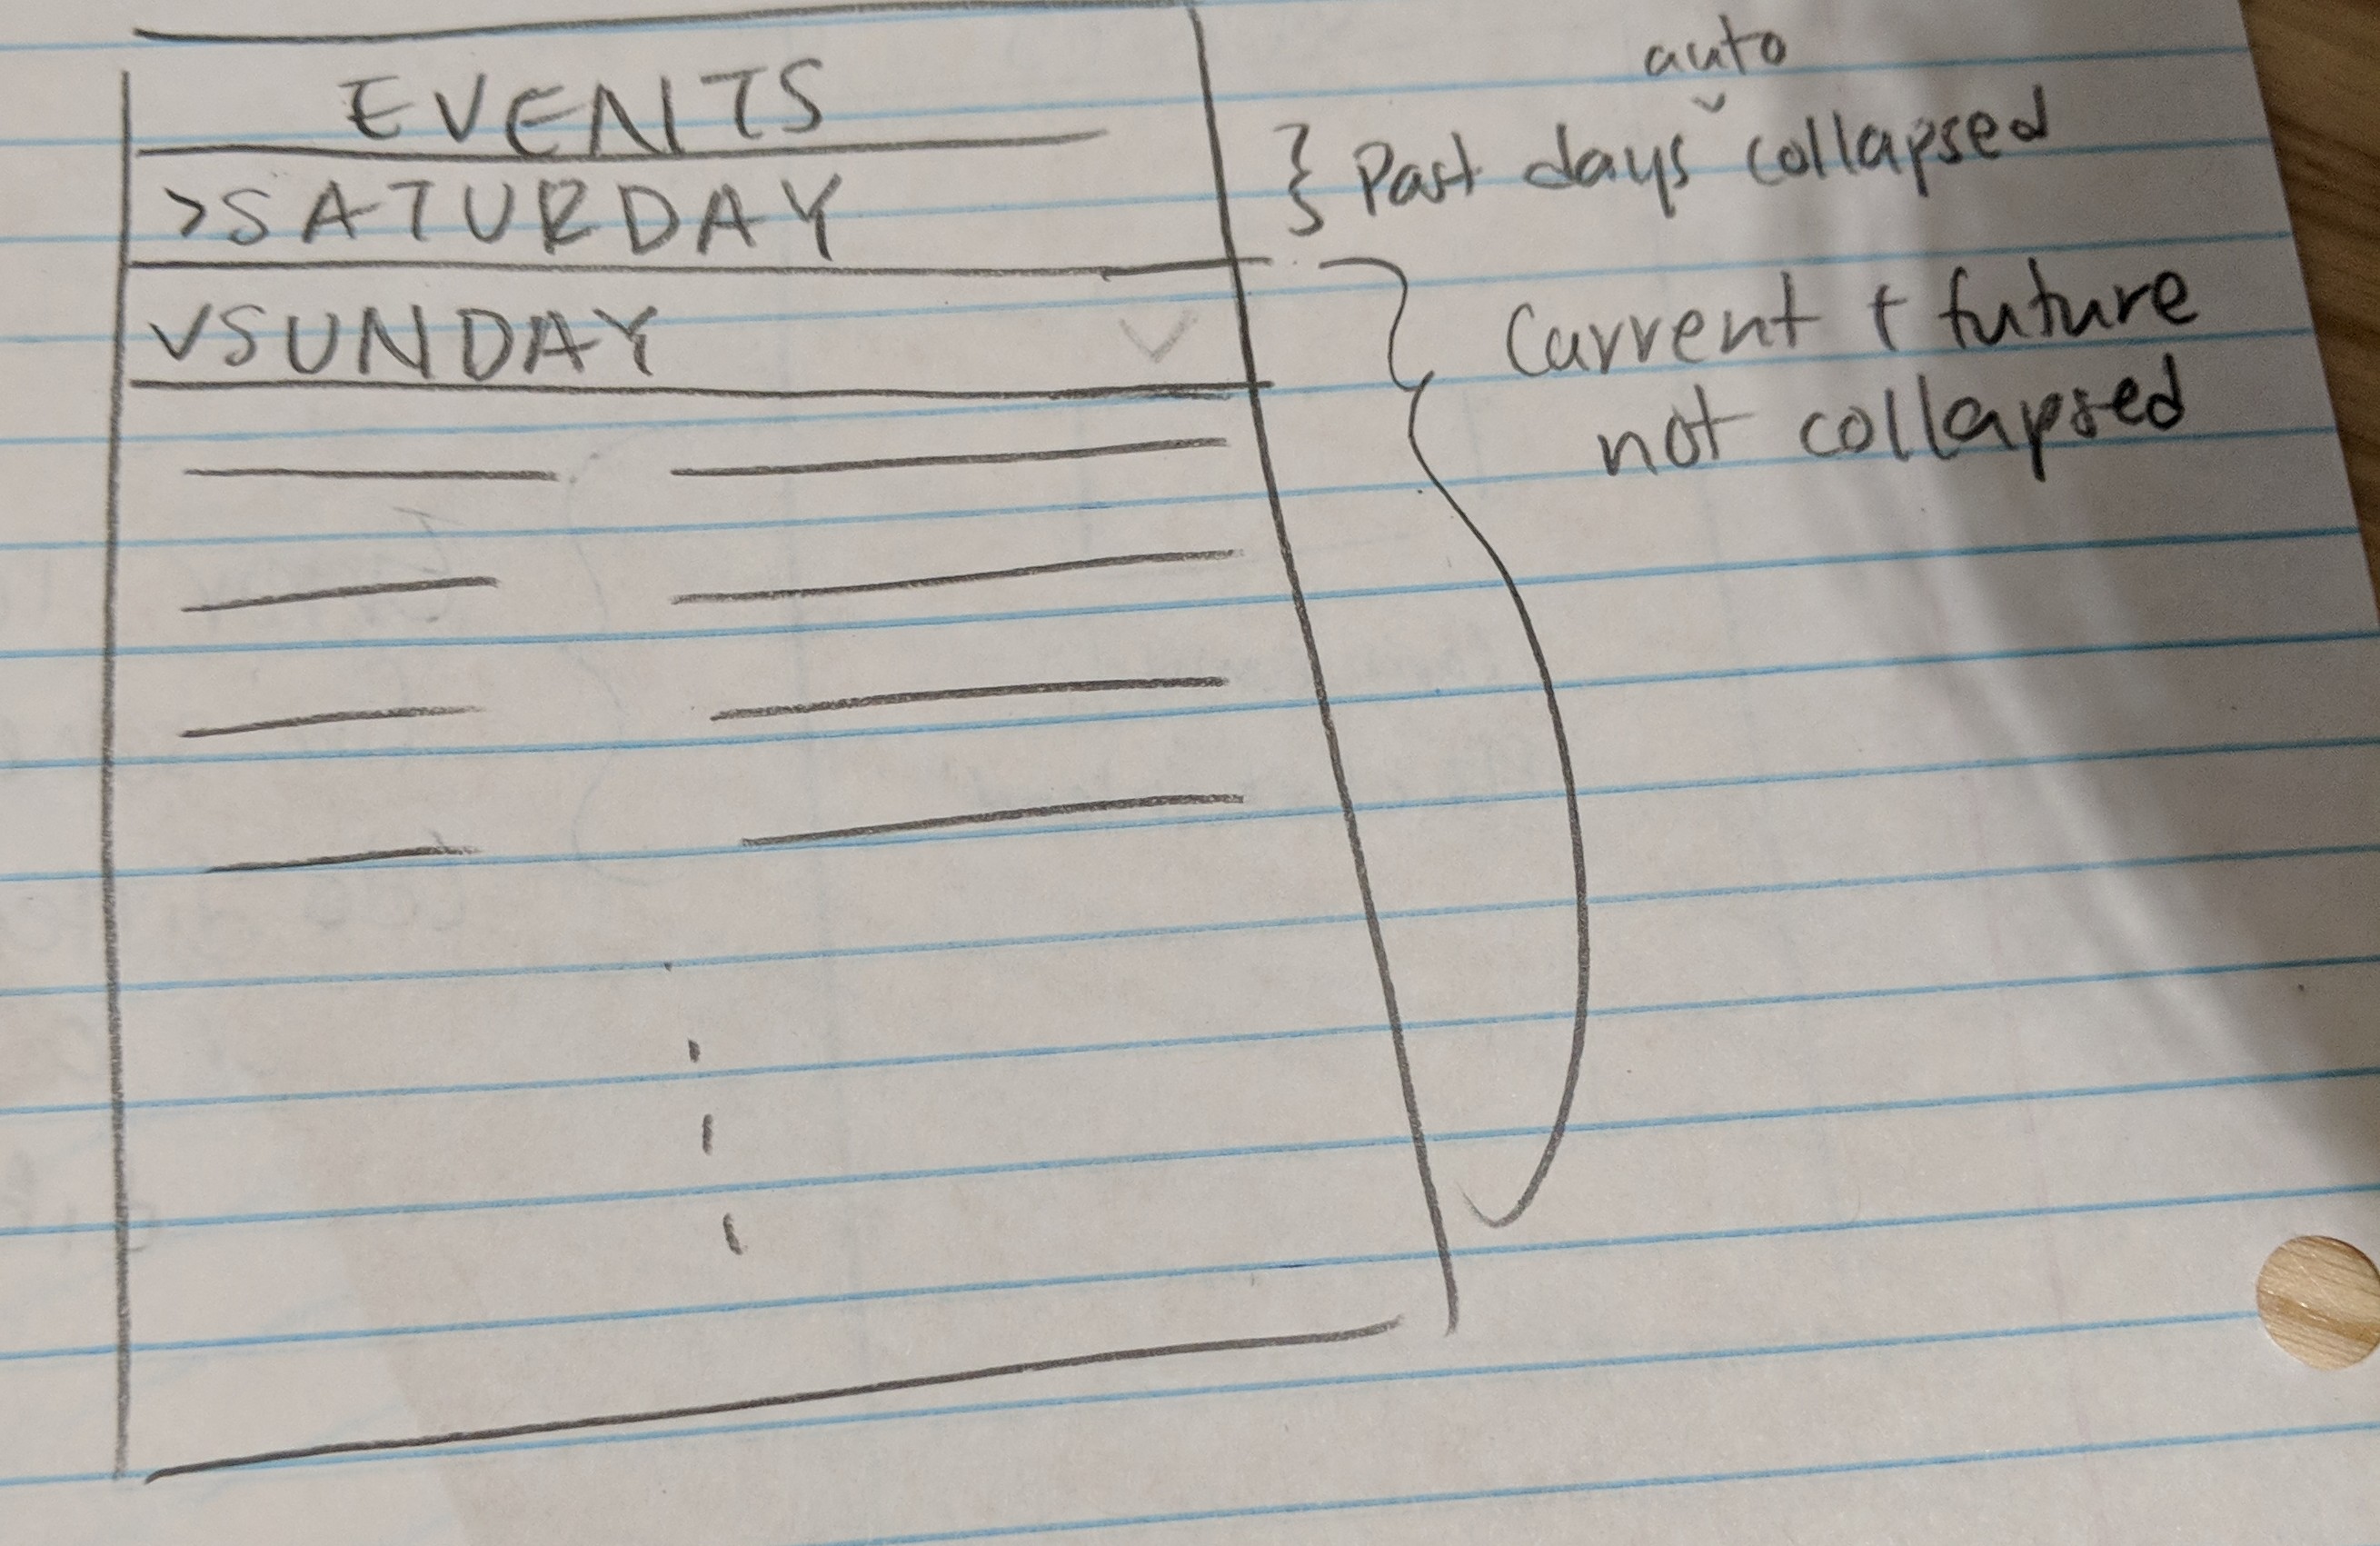 EVENTS
>SATURDAY
vSUNDAY
auto
} Past days ˇ collapsed
Current + future
not collapsed